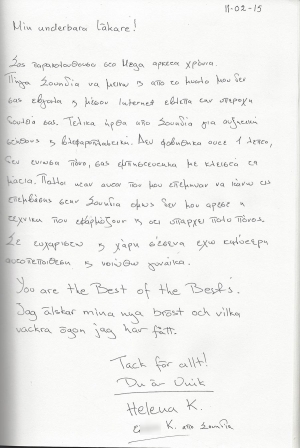 11-02-15
Min underbara Läkare!
Σας παρακολουθούσα στο Mega αρκετά χρόνια.
Πήγα Σουηδία να μείνω η απο το μυαλό μου δεν
σας έβγαλα η μέσου Internet έβλεπα την υπεροχη
δουλειά σας. Τελικά ήρθα απο Σουηδία για αυξητική
στήθους η βλεφαροπλαστική. Δεν φοβήθηκα ουτε 1 λεπτο,
δεν ενιωσα πόνο, σας εμπιστευτηκα με κλειστά τα
μάτια. Πολλοι ηταν αυτοι που μου επέμεναν να κάνω τις
επεμβάσεις στην Σουηδία ομως δεν μου αρεσε η
τεχνικη που εφαρμόζουν η οτι υπαρχει πολυ πόνος.
Σε ευχαριστω η χάρη σε σενα εχω καλύτερη
αυτοπεποίθεση η νοιώθω γυναίκα.
You are the Best of the Best's.
Jag älskar mina nya bröst och vilka
vackra ögon jag har fått.
Tack för allt!
Du är Unik
Helena K.
K. απο Σουηδία